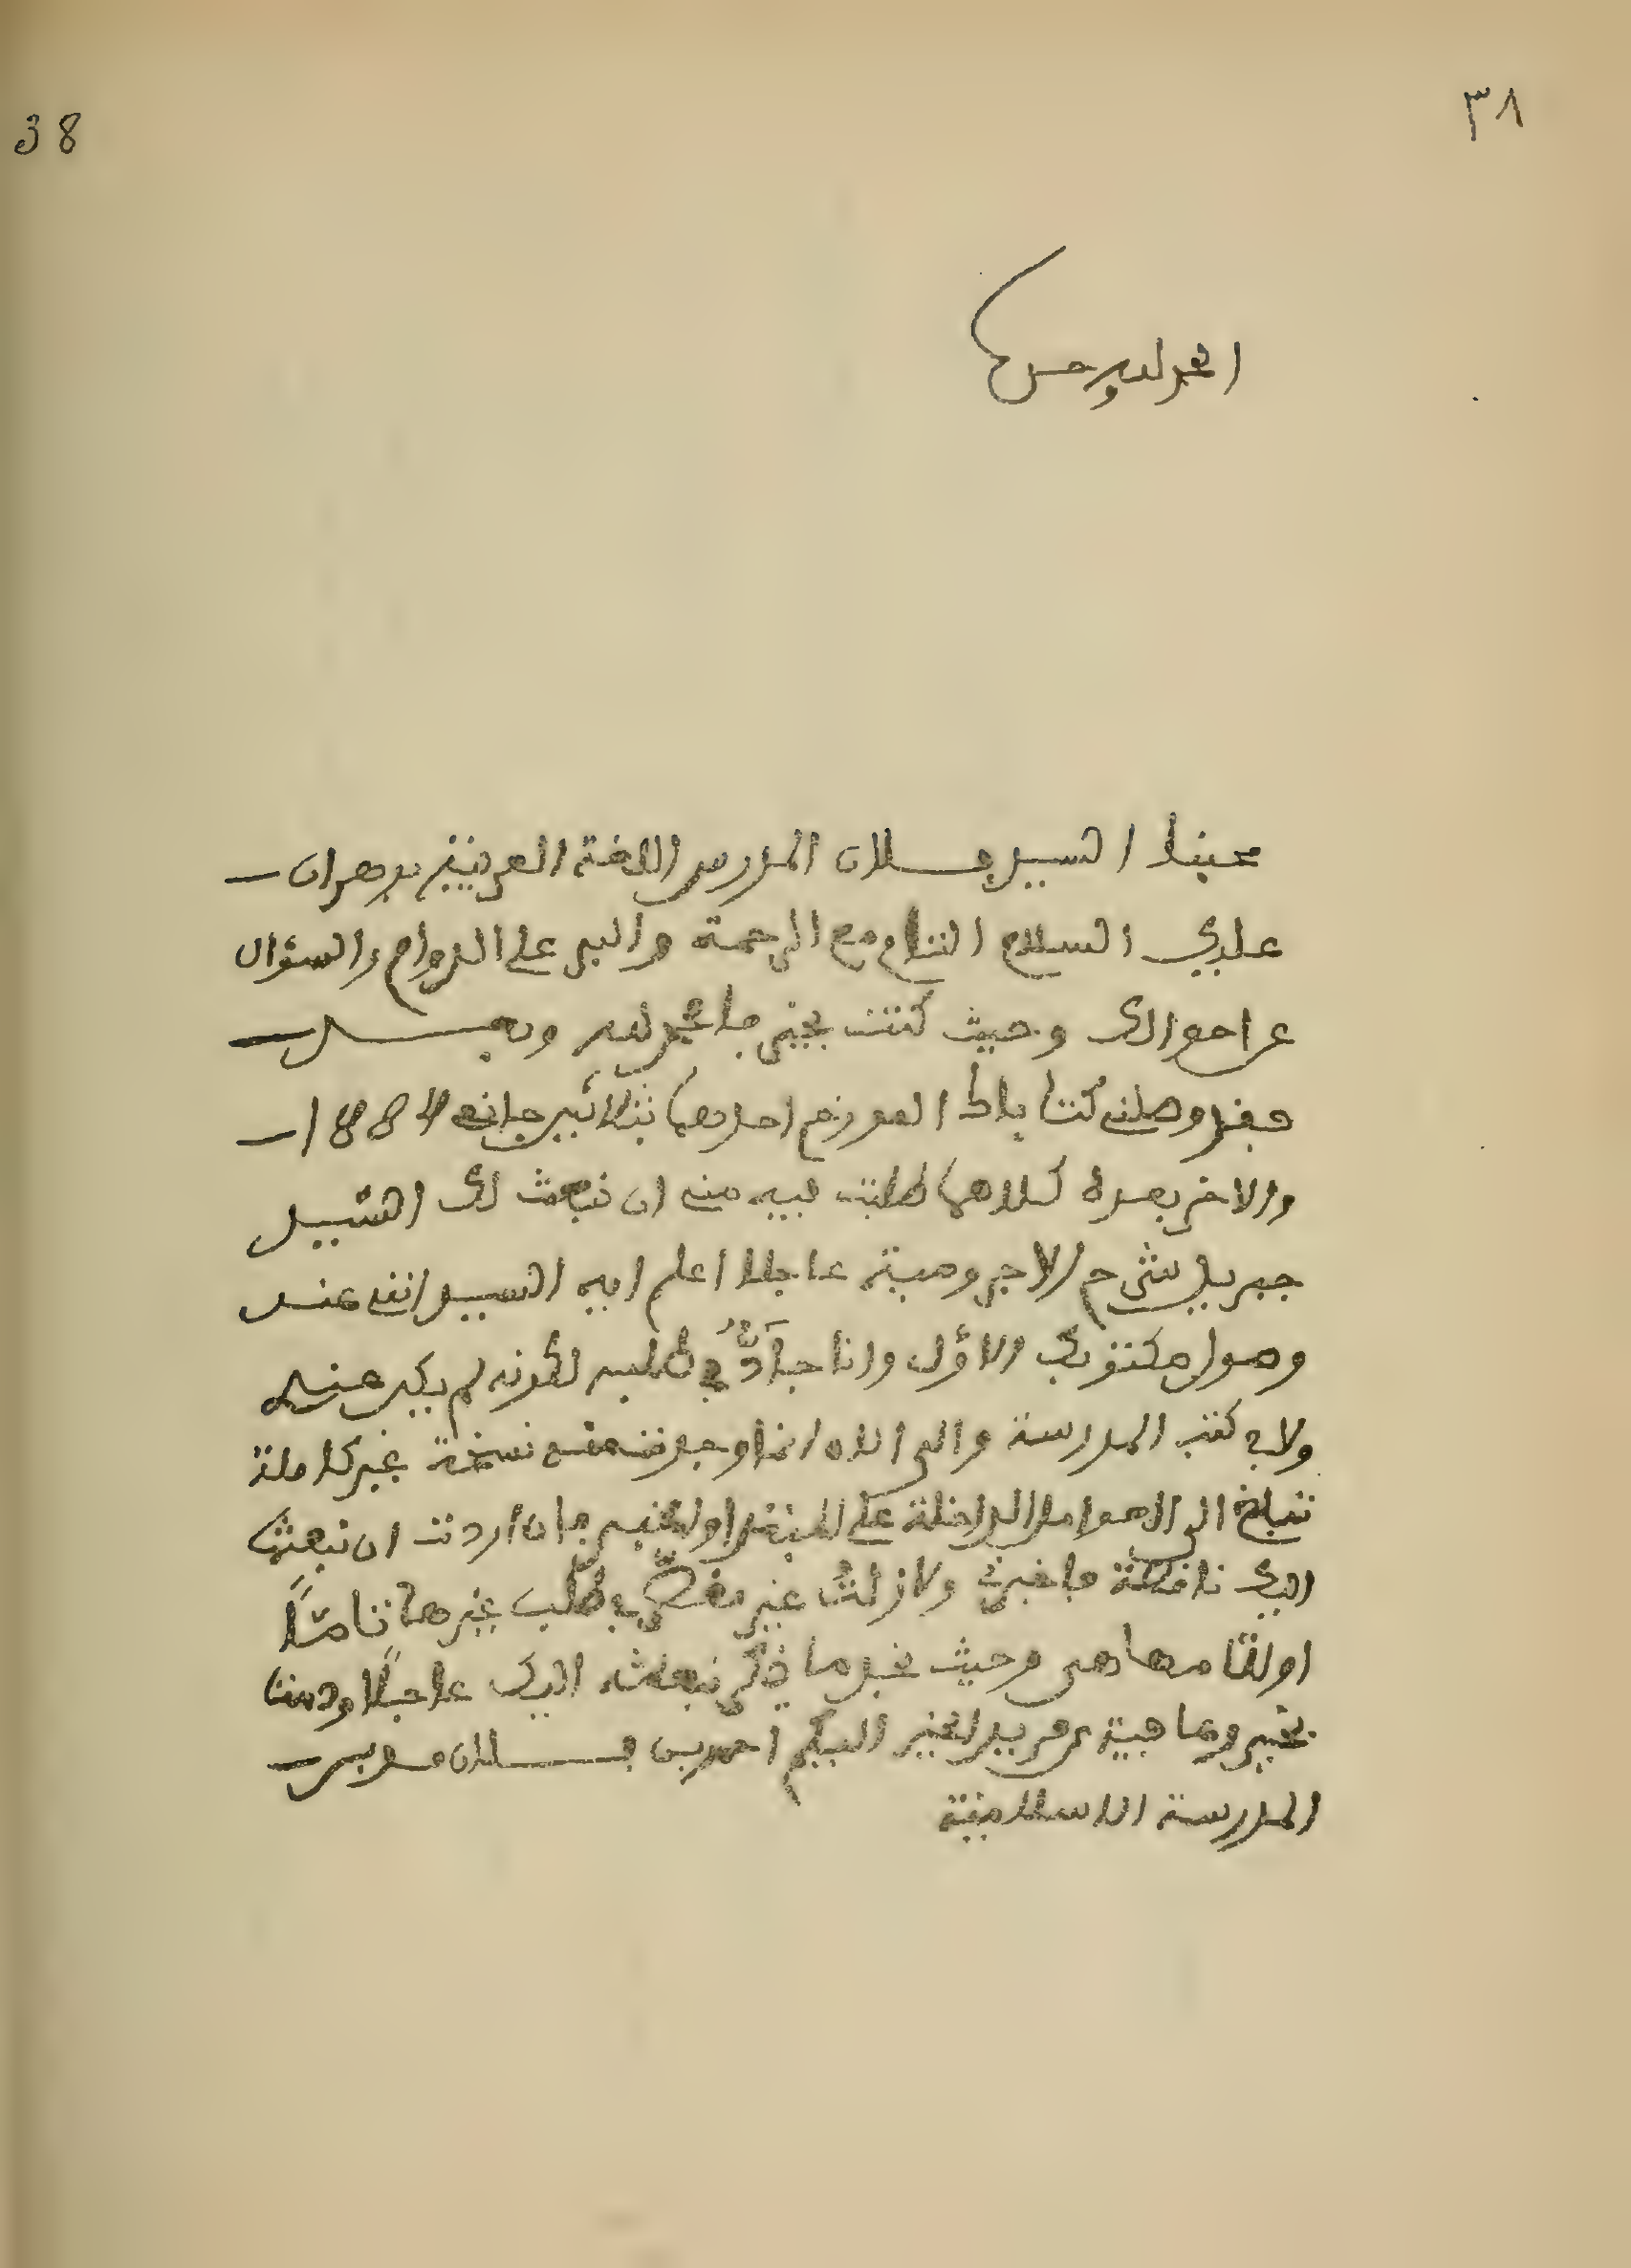 ٣٨
38
الحمد لله وحده
محبنا السيد فلان المدرس اللغة العربية بوهران
عليك السلام التام مع الرحمة والبر على الدوام والسؤال
عن احوالك وحيث كنت بخير فالحمد لله وبعد
فقد وصلني كتاباك المورخ احدهما بثلاثين جانفي 1887
والاخر بعده كلاهما طلبت فيه مني ان نبعث لك الشيخ
جبريل شرح الاجرومية عاجلا اعلم ايه السيد انني عند
وصول مكتوبك الاول وانا جادٌّ في طلبه لكونه لم يكن عندي
ولا في كتب المدرسة والى الان انما وجدت منه نسخة غير كاملة
تبلغ الى العوامل الداخلة على المبتدا والخبر فان اردت ان نبعثها
اليك ناقصة فاخبرني ولا زلتُ غير في طلب غيرها تامًّا
او لقا مها هي وحيث غير ما ذكر نبعثه اليك عاجلًا ودمت
بخير وعافية من مريد الخير اليكم احمد بن فلان مدرس
المدرسة الاسلامية